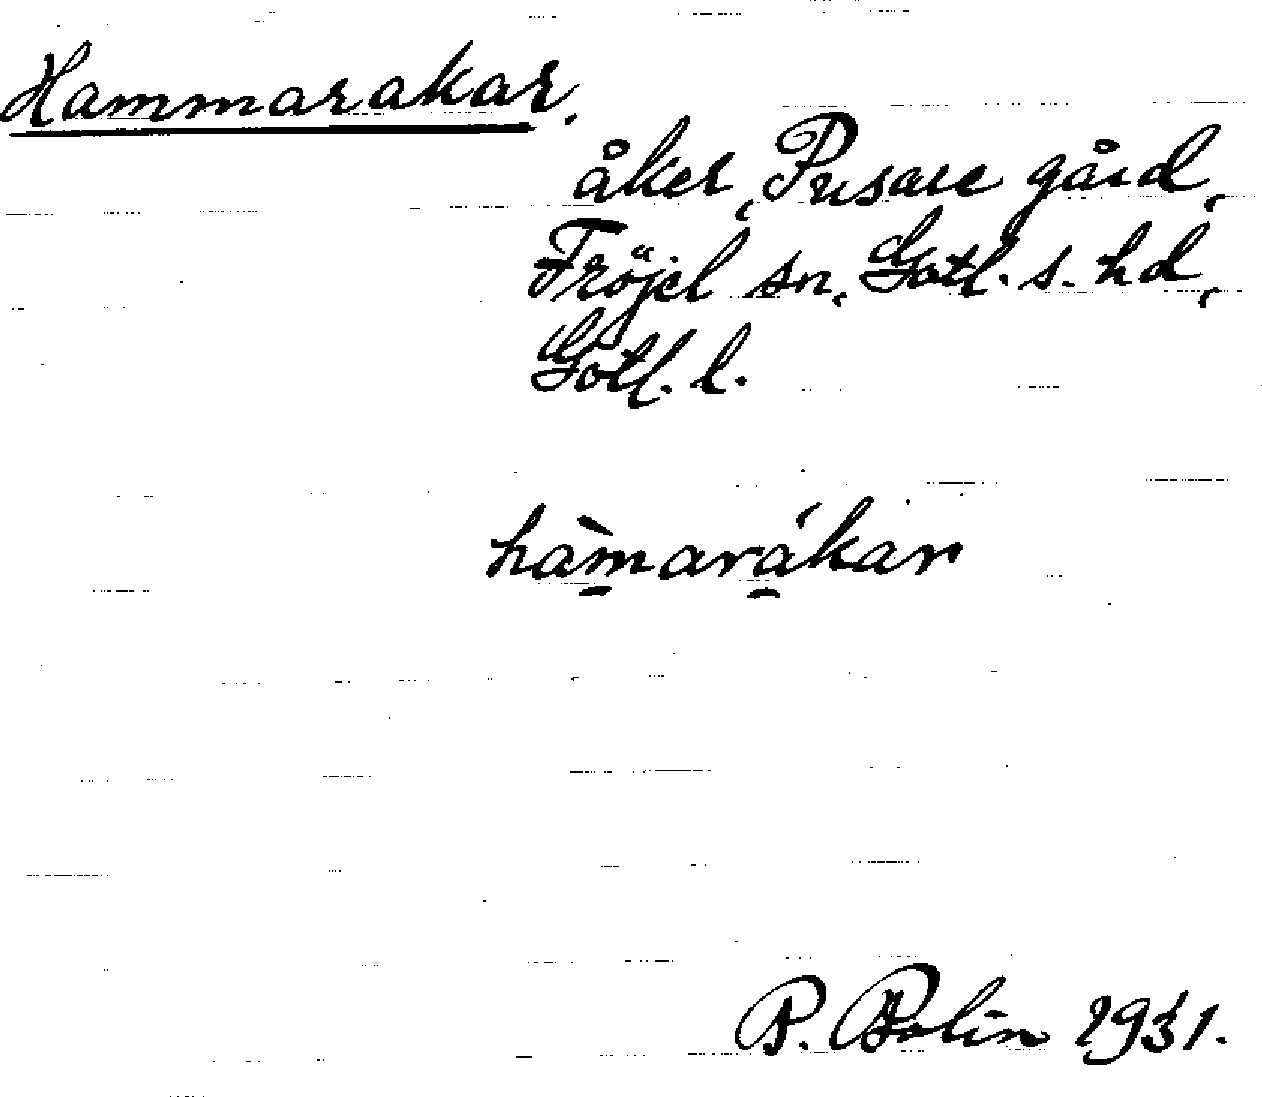 Hammarakar.
åker, Pusare gård,
Fröjel sn, Gotl. s. hd,
Gotl. l.
hàm̱ará̱kar
P. Bolin 1931.